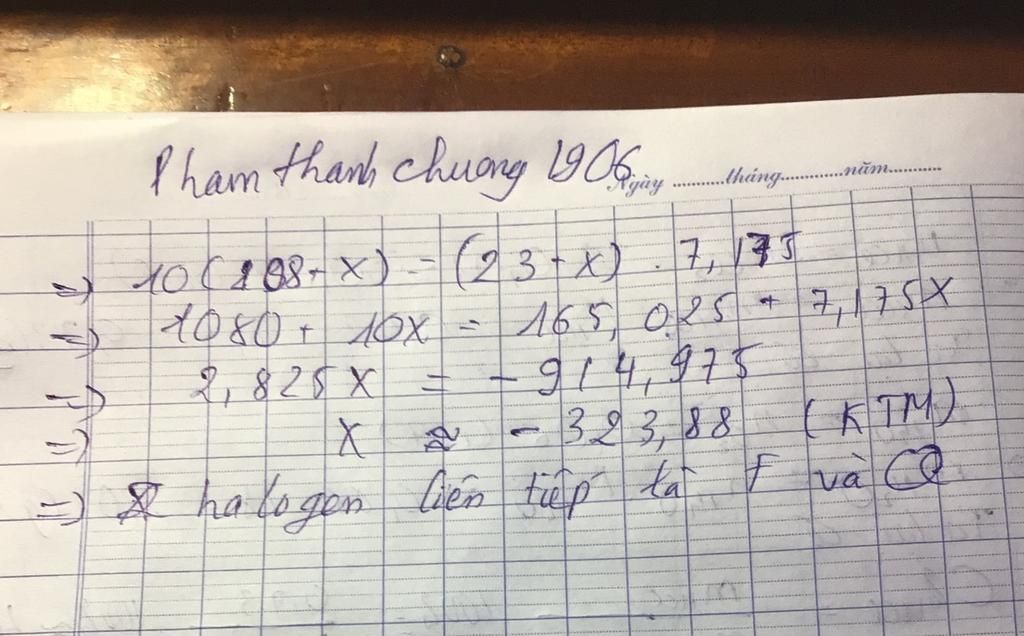 Pham thanh chuong 1906
Ngày ..........tháng............năm..........
=) 10(108+X) = (23+X) . 7,175
=) 1080 + 10X = 165,025 + 7,175X
=) 2,825X = -914,975
=) X ≈ -323,88 (KTM)
=) halogen liên tiếp là F và Cl